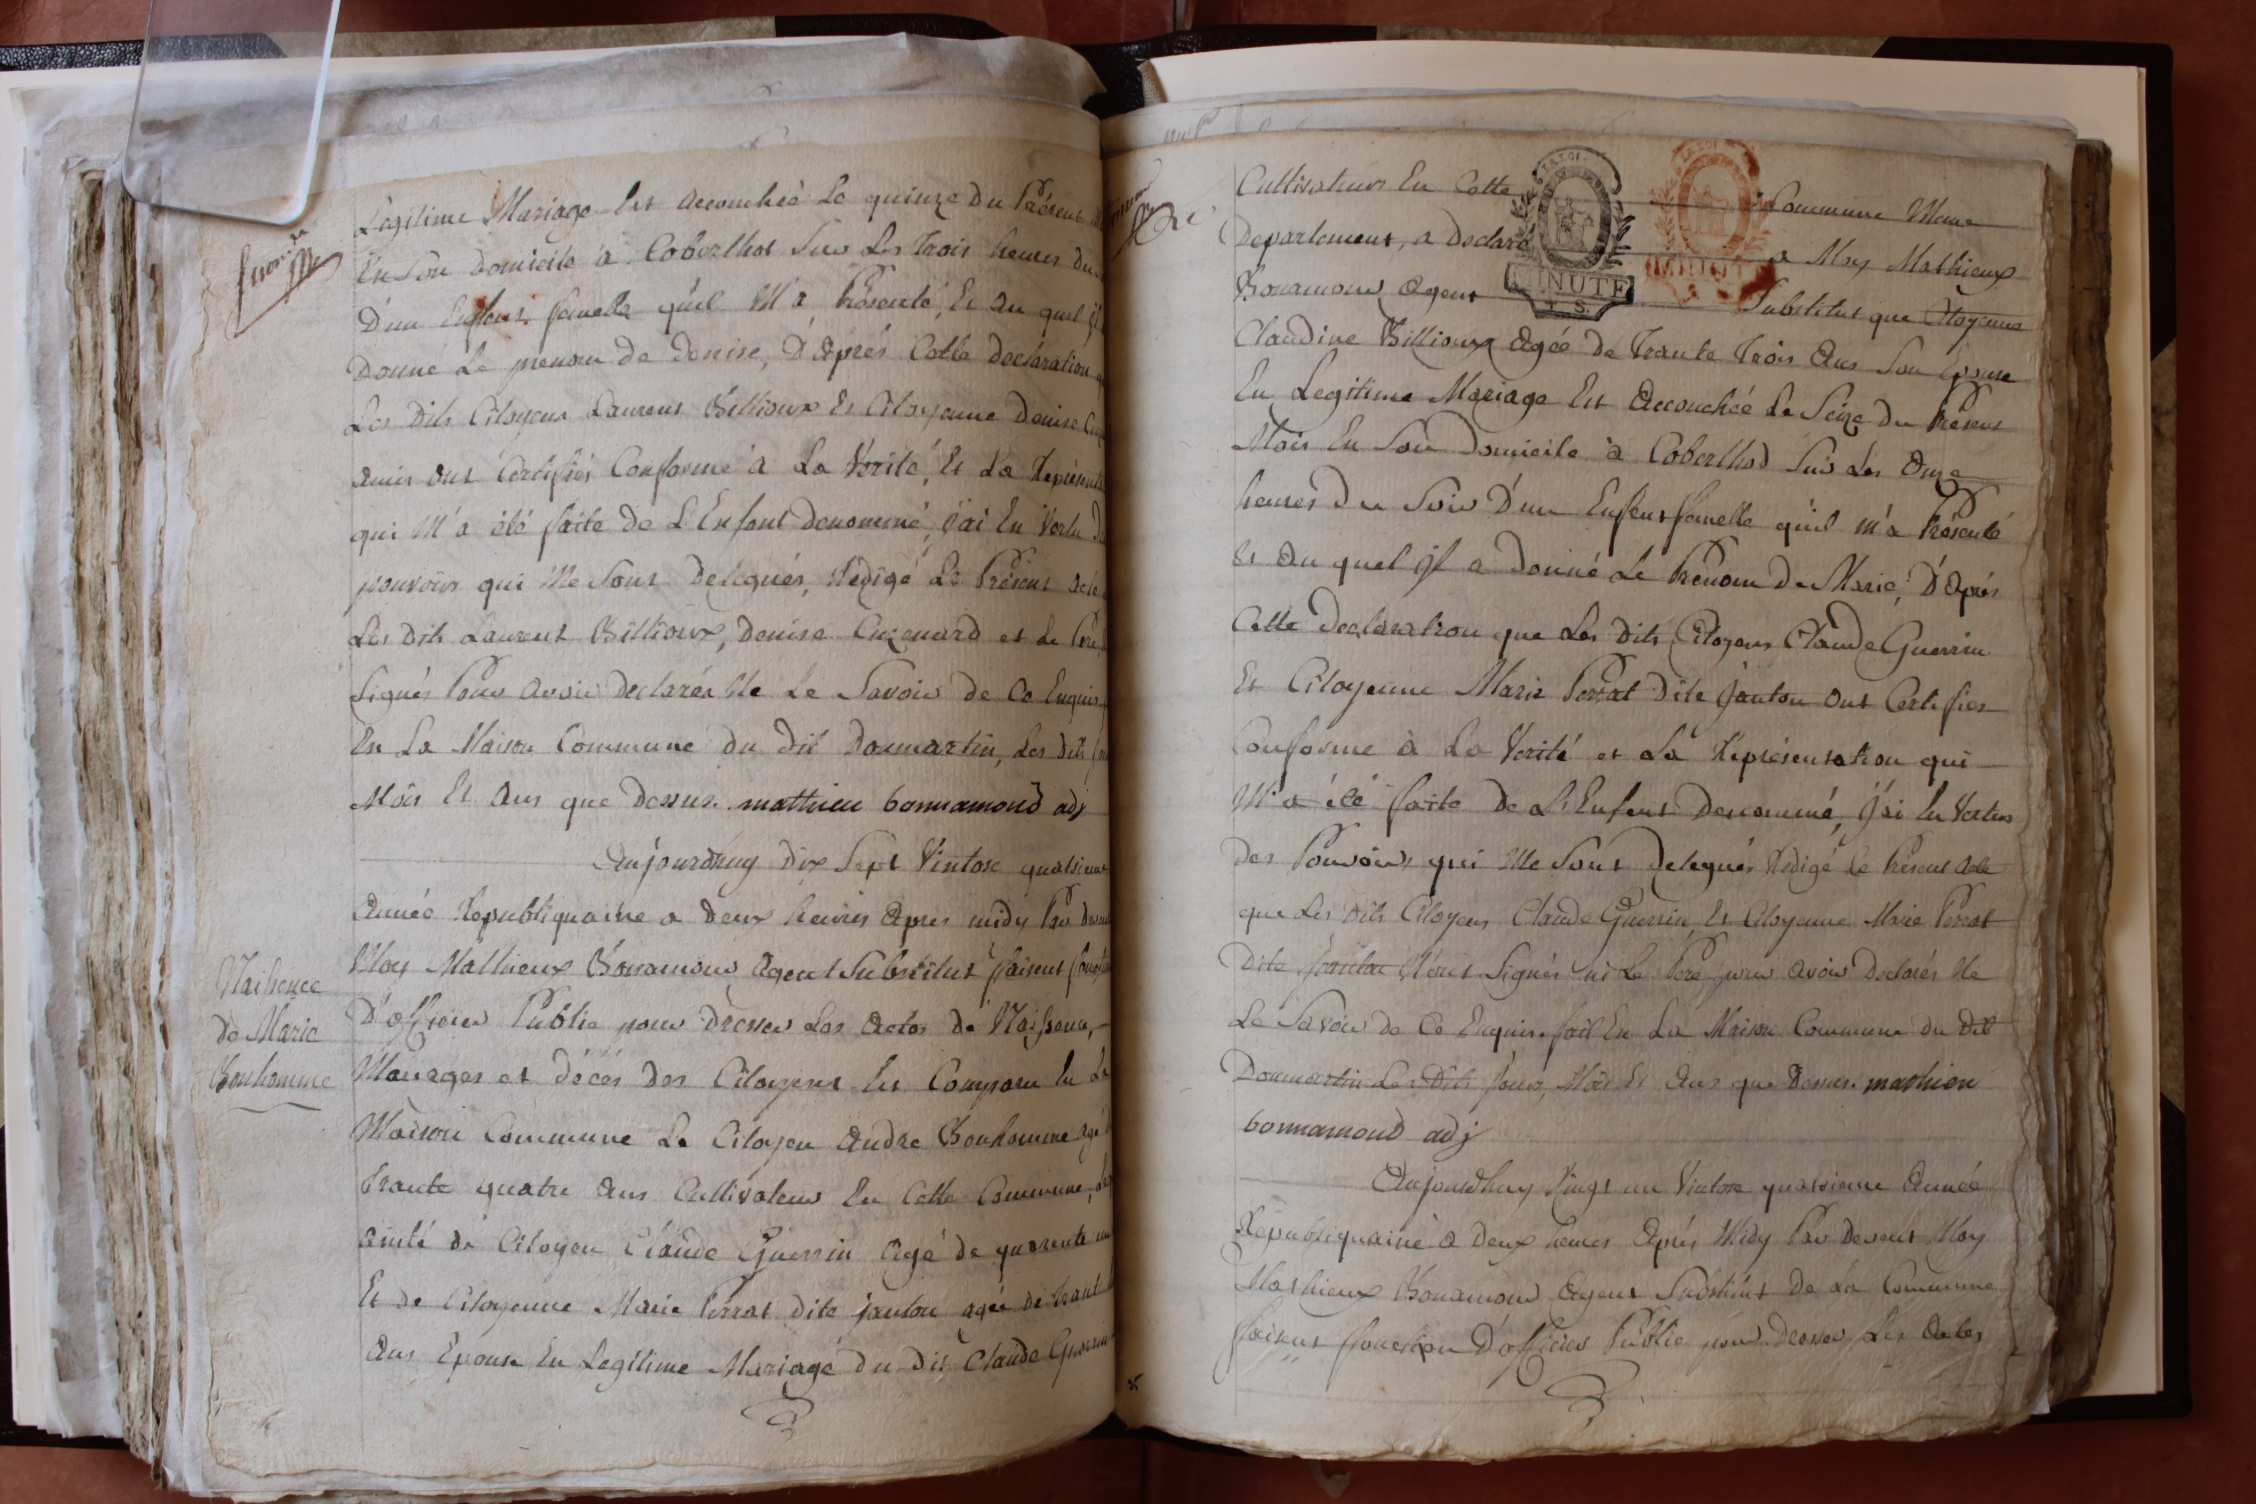 Legitime Mariage Est accouchéé Le quinze du Présent
En Son Domicile a Coberthod Sur Les Trois heures du
D'un Enfent femelle qu'il M'a Présenté, Et au quel il
Donné Le prenom de Denise, D'Aprés Cette Declaration
Les Dits Citoyens Laurent Billioux Et Citoyenne Denise
amis ont Certifiés Conforme a La Verité, Et La
qui M'a été faite de L'Enfant Denommé, J'ai En Vertu
pouvoirs qui Me Sont Delegués, Redigé Le Présent Acte
Les Dits Laurent Billioux, Denise Cuzenard et Le Pere
Signés Pour avoir Declarés Ne Le Savoir de Ce Enquis
En La Maison Commune du Dit Dommartin, Les Dits
Mois Et Ans que Dessus. matthieu bonnamond adj
Aujourdhuy Dix Sept Vintose quatrieme
Année Republiquaine a Deux heures Apres midy Par
Moy Mathieux Bonamour Agent Substitut faisent
D'officier Public pour Dresser Les Actes de Naissance,
Mariages et décés des Citoyens Est Comparu En La
Maison Commune Le Citoyen Andre Bonhomme Agé
Trante quatre Ans Cultivateur En Cette Commune,
Naihence
de Marie
Bonhomme
de Citoyen Claude Guerrin Agé de quarente
Et de Citoyenne Marie Perrat dite jauton agée de
Ans Epouse En Legitime Mariage du Dit Claude Guerrin
Cultivateurs En Cette Commune Meme
LA LOI
LA LOI
Departement, a Declaré a Moy Mathieux
MINUTE
MINUTE
Bonamour Agent Substitut que Citoyenne
T. S.
Claudine Billioux Agéé de Trante Trois Ans Son Epouse
En Legitime Mariage Est Accouchéé Le Seize du Présent
Mois En Son Domicile a Coberthod Sur Les Onze
heures Du Soir D'un Enfent femelle qu'il m'a Présenté
Et Au quel il a Donné Le Prenom De Marie, D'Aprés
Cette Declaration que Les Dits Citoyens Claude Guerrin
Et Citoyenne Marie Perrat Dite Jauton Ont Certifier
Conforme à La Verité et La Représentation qui
M'a été faite De L'Enfent Denommé, J'ai En Vertus
Des Pouvoirs qui Me Sont Delegués Redigé Le Présent Acte
que Les Dits Citoyens Claude Guerrin Et Citoyenne Marie Perrat
Dite Jauton N'ont Signés ni Le Pere pour avoir Declarés Ne
Le Savoir de Ce Enquis. fait En La Maison Commune du Dit
Dommartin Les Dits Jour, Mois Et Ans que Dessus. mathieu
bonnamond adj
Aujourdhuy Vingt un Vintose quatrieme Année
Republiquaine a Deux heures Aprés Midy Par Devent Moy
Mathieux Bonamour Agent Substitut de La Commune
faisent fonction D'officier Public pour Dresser Les Actes